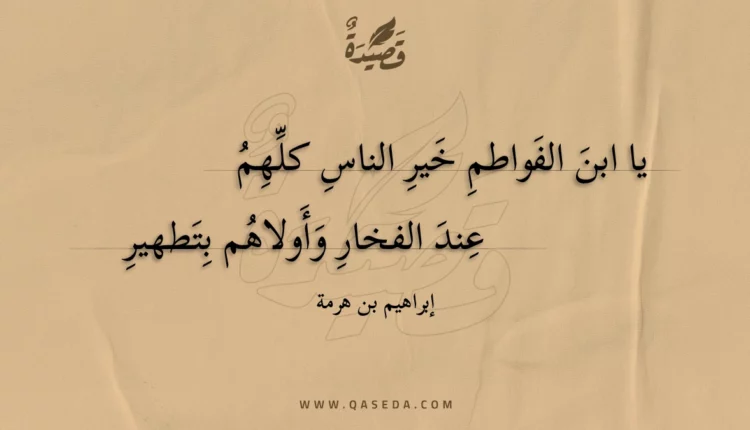 قَصِيْدَةٌ
يا ابنَ الفَواطمِ خَيرِ الناسِ كلِّهِمُ
عِندَ الفخارِ وَأَولاهُم بِتَطهيرِ
إبراهيم بن هرمة
WWW.QASEDA.COM